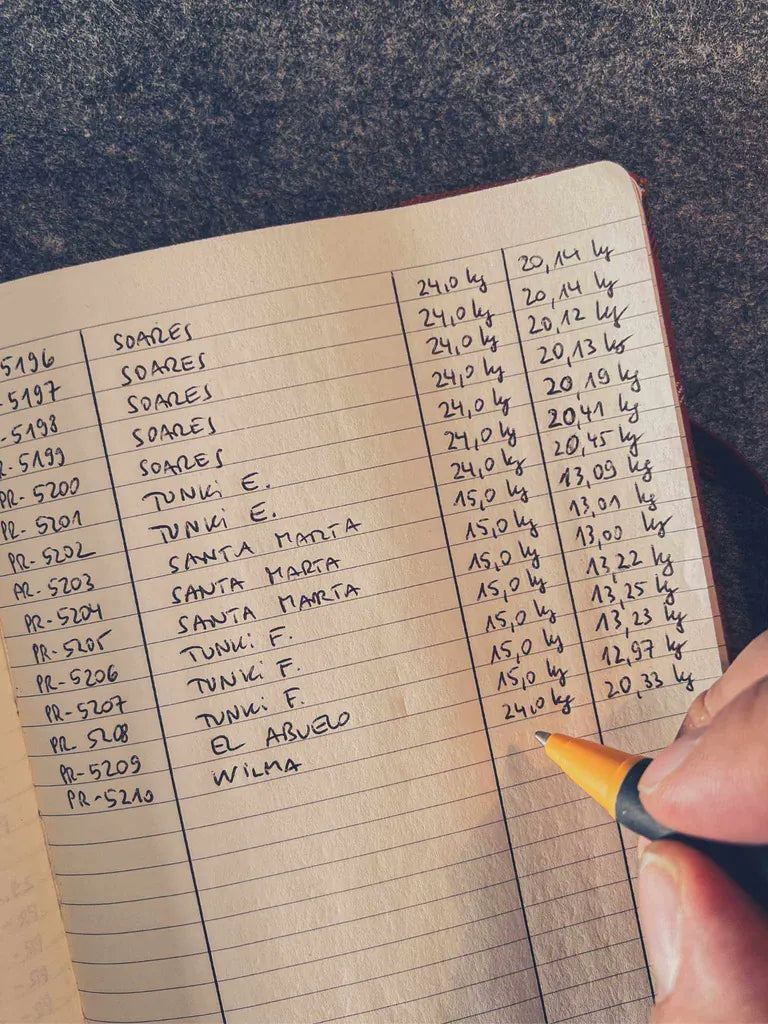 5196 SOARES 24,0 kg 20,14 kg
-5197 SOARES 24,0 kg 20,14 kg
-5198 SOARES 24,0 kg 20,12 kg
R-5199 SOARES 24,0 kg 20,13 kg
PR-5200 SOARES 24,0 kg 20,19 kg
PR-5201 TUNKi E. 24,0 kg 20,41 kg
PR-5202 TUNKi E. 24,0 kg 20,45 kg
PR-5203 SANTA MARTA 15,0 kg 13,09 kg
PR-5204 SANTA MARTA 15,0 kg 13,01 kg
PR-5205 SANTA MARTA 15,0 kg 13,00 kg
PR-5206 TUNKi F. 15,0 kg 13,22 kg
PR-5207 TUNKi F. 15,0 kg 13,25 kg
PR-5208 TUNKi F. 15,0 kg 13,23 kg
PR-5209 EL ABUELO 15,0 kg 12,97 kg
PR-5210 WiLMA 24,0 kg 20,33 kg